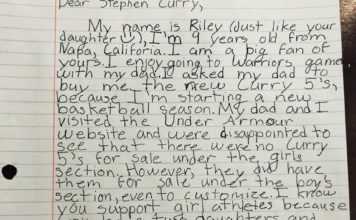 Dear Stephen Curry,
My name is Riley (just like your
daughter), I'm 9 years old from
Napa, California. I am a big fan of
yours. I enjoy going to Warriors game
with my dad. I asked my dad to
buy me the new Curry 5's
because I'm starting a new
basketball season. My dad and I
visited the Under Armour
website and were disappointed to
see that there were no Curry
5's for sale under the girls
section. However, they did have
them for sale under the boy's
section, even to customize. I know
you support girl athletes because
you have two daughters and